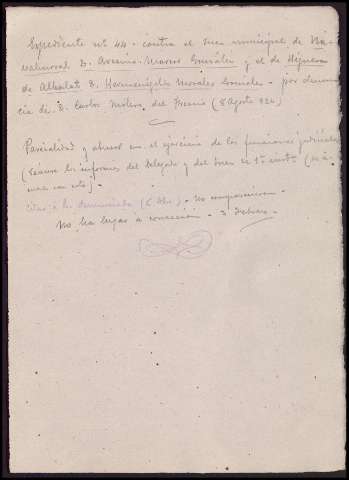 Expediente nº 44 - contra el Juez municipal de Na-
valmoral D. Marcos González y el de Higuera
de Albalat D. Hermenegildo Morales González - por denun-
cia de D. Carlos Molero del (8 Agosto 924)
Parcialidad y abusos en el ejercicio de las funciones judiciales
(Reunir los informes del Delegado y del Juez de 1ª instª
citar a los denunciados (6 - No comparecieron
No ha lugar a corrección - 3 Febrero -